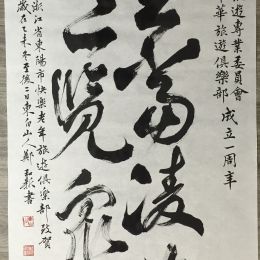 旅遊專業委員會
華旅遊俱樂部 成立一周年
當凌
一覽眾
浙江省東陽市快樂老年旅遊俱樂部 致賀
歲在乙未冬至後二日東白山人鄭
書